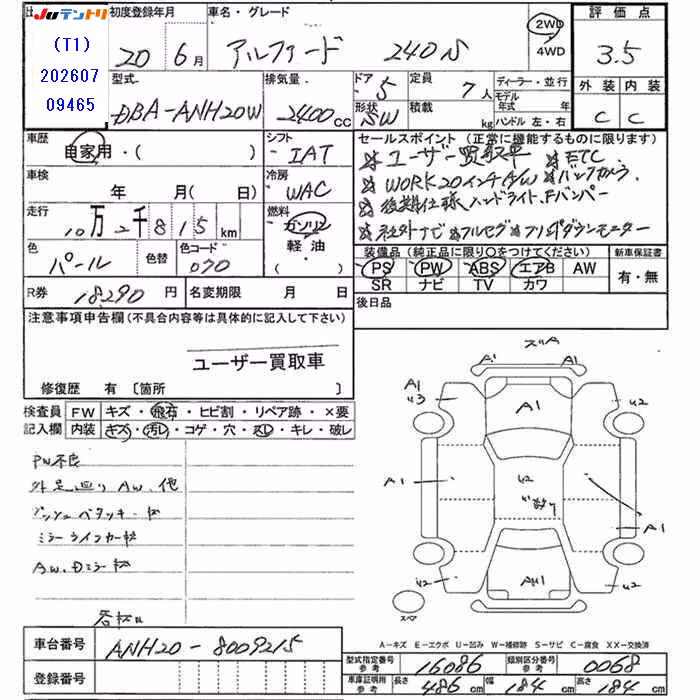 JUテントリ
(T1)
202607
09465
初度登録年月
20年6月
車名・グレード
アルファード 240S
2WD
4WD
評価点
3.5
外装 内装
C C
型式
DBA-ANH20W
排気量
2400cc
ドア 5
形状 SW
定員 7人
積載 kg
ディーラー・並行
モデル年式 年
ハンドル 左・右
車歴
自家用・( )
シフト
IAT
車検
年 月( 日)
冷房
WAC
走行
10万2千815km
燃料
ガソリン
軽油
( )
色
パール
色替
色コード
070
R券 18290円
名変期限 月 日
セールスポイント(正常に機能するものに限ります)
☆ユーザー買取車 ☆ETC
☆WORK20インチA/W ☆バックカメラ
☆後期仕様ヘッドライト、Fバンパー
☆社外ナビ ☆フルセグ ☆フリップダウンモニター
装備品(純正品に限り○をつけてください)
新車保証書
PS PW ABS エアB AW
SR ナビ TV カワ
有・無
後日品
注意事項申告欄(不具合内容等は具体的に記入して下さい)
ユーザー買取車
修復歴 有 〔箇所 〕
検査員記入欄
FW キズ・飛石・ヒビ割・リペア跡・×要
内装 キズ・汚レ・コゲ・穴・スレ・キレ・破レ
PW不良
外足廻り AW、他
ミラーライフカーキズ
A1
A1
A1
A1
U2
U3
U2
A1
A1
U2
U2
U2
スペア
A-キズ E-エクボ U-凹み W-補修跡 S-サビ C-腐食 XX-交換済
車台番号
ANH20-8009215
登録番号
型式指定番号参考 16086
類別区分番号参考 0068
車庫証明用参考 長さ 486cm 幅 184cm 高さ 184cm